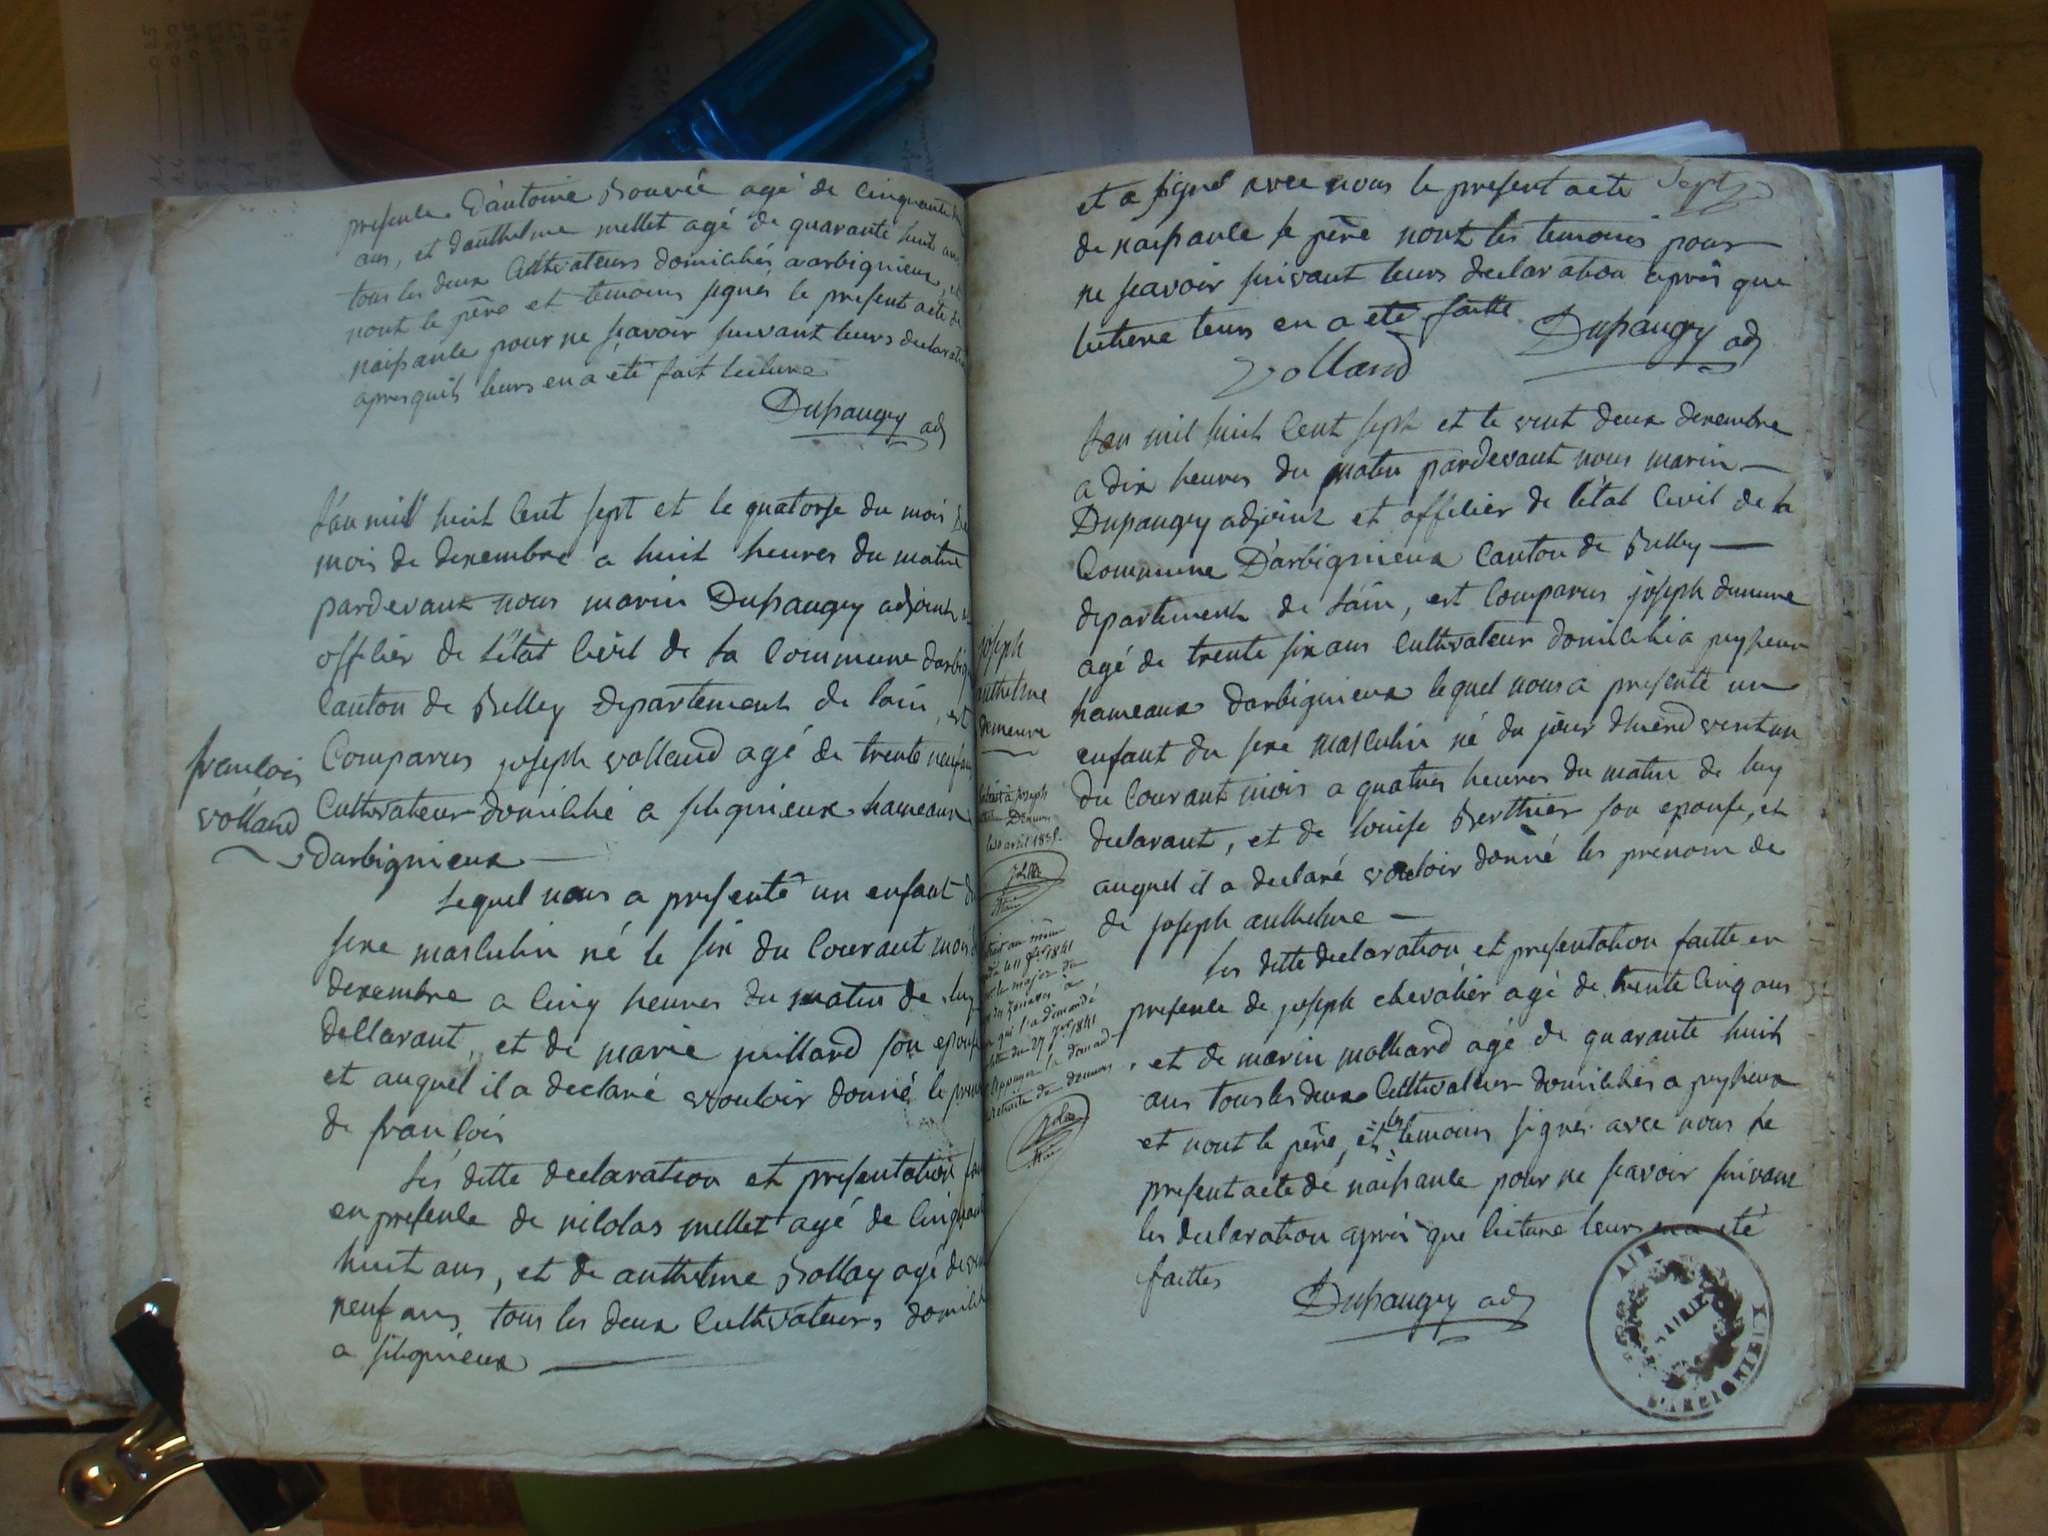 presence D'antoine Bouvié agé de cinquante
ans, et danthelme mellet agé de quarante huit ans
tous les deux Cultivateurs domiciliés a arbignieux, et
nont le père et temoins signés le present acte de
naissance pour ne scavoir suivant leurs declaration
apresquils leurs en a été fait lecture
Dupaugey adj
L'an mil huit Cent sept et le quatorse du mois De
mois de dexembre a huit heures du matin
pardevant nous marin Dupaugey adjoint et
officier de L'état Civil de la Commune darbig
Canton de Belley Departement de lain, est
Comparus joseph volland agé de trente neuf ans
Cultivateur domicilié a silignieux hameaux
Darbignieux
françois
volland
Lequel nous a presenté un enfant du
sexe masculin né le six du Courant mois
dexembre a Cinq heures du matin de luy
Declarant, et de marie juillard son epouse
et auquel il a declaré vouloir donné le prenom
de françois
Les ditte declaration et presentation
en presence de nicolas mellet agé de Cinquante
huit ans, et de anthelme Bollay agé de
neuf ans tous les deux Cultivateurs domicilié
a silignieux
et a signé avec nous le present acte
Sept
de naissance le père nont les temoins pour
ne scavoir suivant leurs declaration après que
lecture leurs en a été faitte
Dupaugey adj
volland
Lan mil huit Cent sept et le vint deux dexembre
a dix heures du matin pardevant nous marin
Dupaugey adjoint et officier de l'état Civil de la
Commune D'arbignieux Canton de Belley
departement de lain, est Comparus joseph dumure
agé de trente six ans Cultivateur domicilié a peyzieux
hameaux darbignieux lequel nous a presenté un
enfant du sexe masculin né du jour dhierd vint un
du Courant mois a quatres heures du matin de luy
declarant, et de louise Berthier son epouse, et
auquel il a declaré vouloir donné les prenom de
de joseph anthelme
joseph
anthelme
demeure
joseph
avril
an même
1841
le major du
Zouaves à
qui l'a demandé
du 27 1841
retraite de demure
Les ditte declaration et presentation faitte en
presence de joseph chevalier agé de trente Cinq ans
et de marin molhard agé de quarante huit
ans tous les deux Cultivateur domiciliés a peyzieux
et nont le père, et les temoins signes avec nous le
present acte de naissance pour ne scavoir suivant
les declaration après que lecture leurs en a été
faittes
Dupaugey adj
AIN
MAIRIE
D'ARBIGNIEU